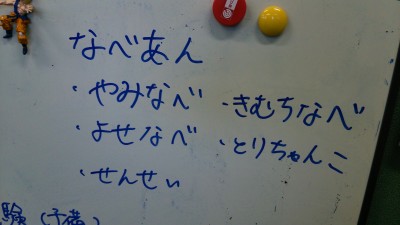 なべあん
・やみなべ
・よせなべ
・せんせい
・きむちなべ
・とりちゃんこ
験(予備)